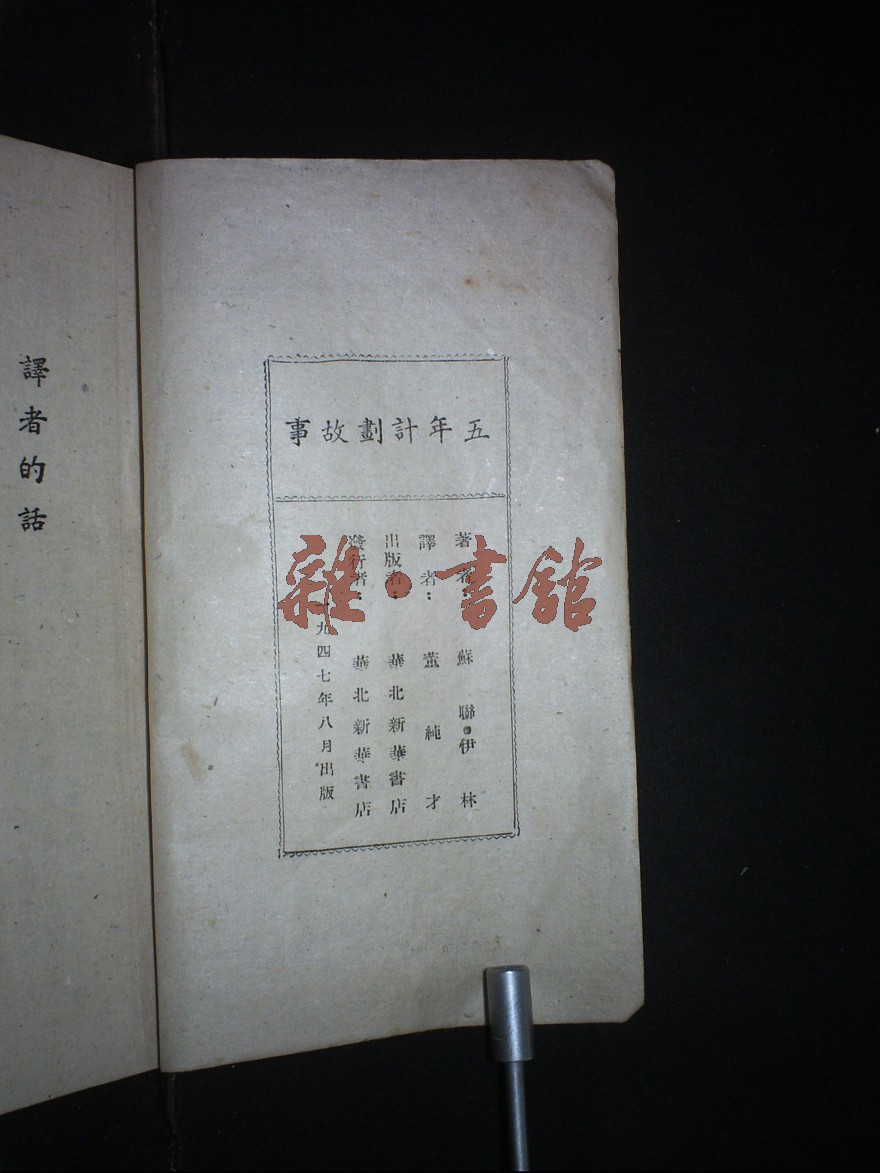 五年計劃故事
著者：蘇聯・伊林
譯者：董純才
出版者：華北新華書店
發行者：華北新華書店
一九四七年八月出版
譯者的話
雜・書館